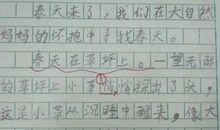 春天来了，我们在大自然
妈妈的怀抱中寻找春天。
春天在草坪上。一望无际
的草坪上小草悄悄探出了头，
这是小草从沉睡中醒来，像大